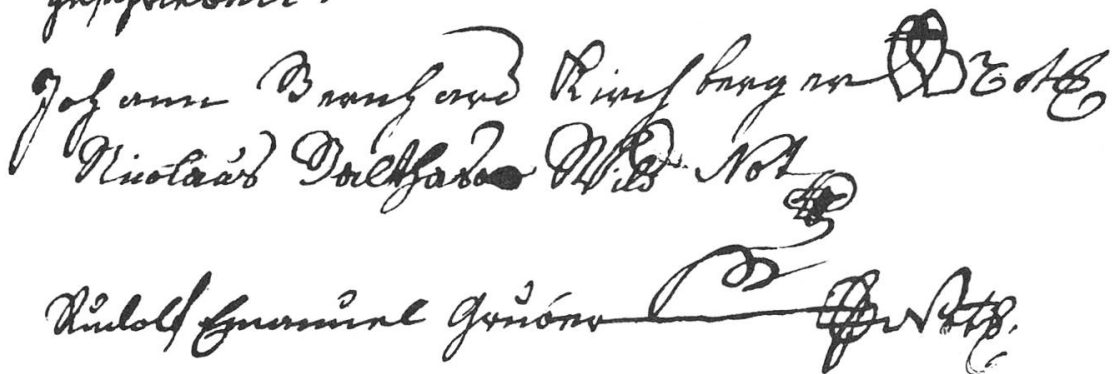 Johann Bernhard Kirchberger Not:
Nicolaus Balthasar Wild Not
Rudolf Emanuel Gruber Not: